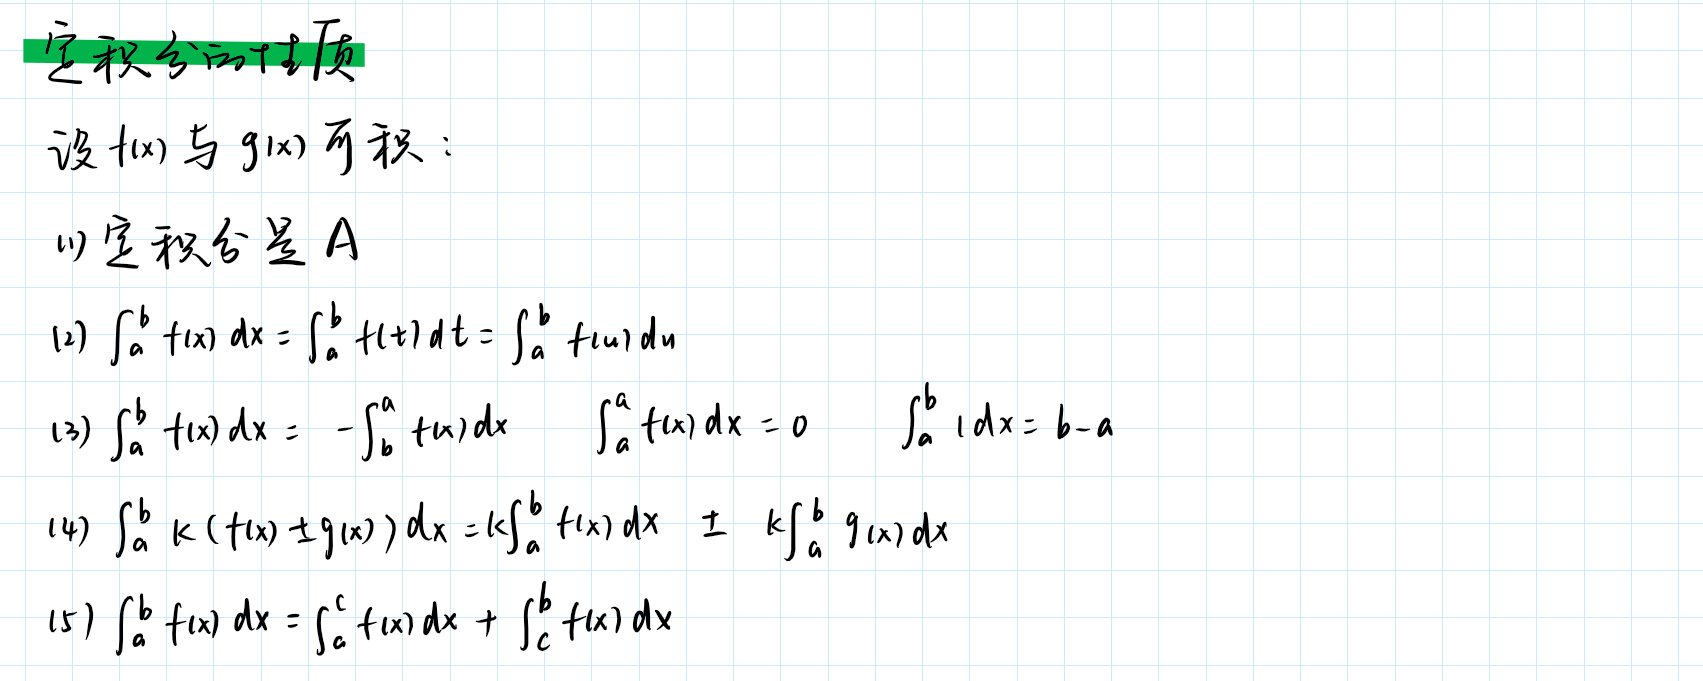 定积分的性质
设 f(x) 与 g(x) 可积：
(1) 定积分是 A
(2) ∫_a^b f(x) dx = ∫_a^b f(t) dt = ∫_a^b f(u) du
(3) ∫_a^b f(x) dx = -∫_b^a f(x) dx ∫_a^a f(x) dx = 0 ∫_a^b 1 dx = b-a
(4) ∫_a^b k (f(x) ± g(x)) dx = k∫_a^b f(x) dx ± k∫_a^b g(x) dx
(5) ∫_a^b f(x) dx = ∫_a^c f(x) dx + ∫_c^b f(x) dx